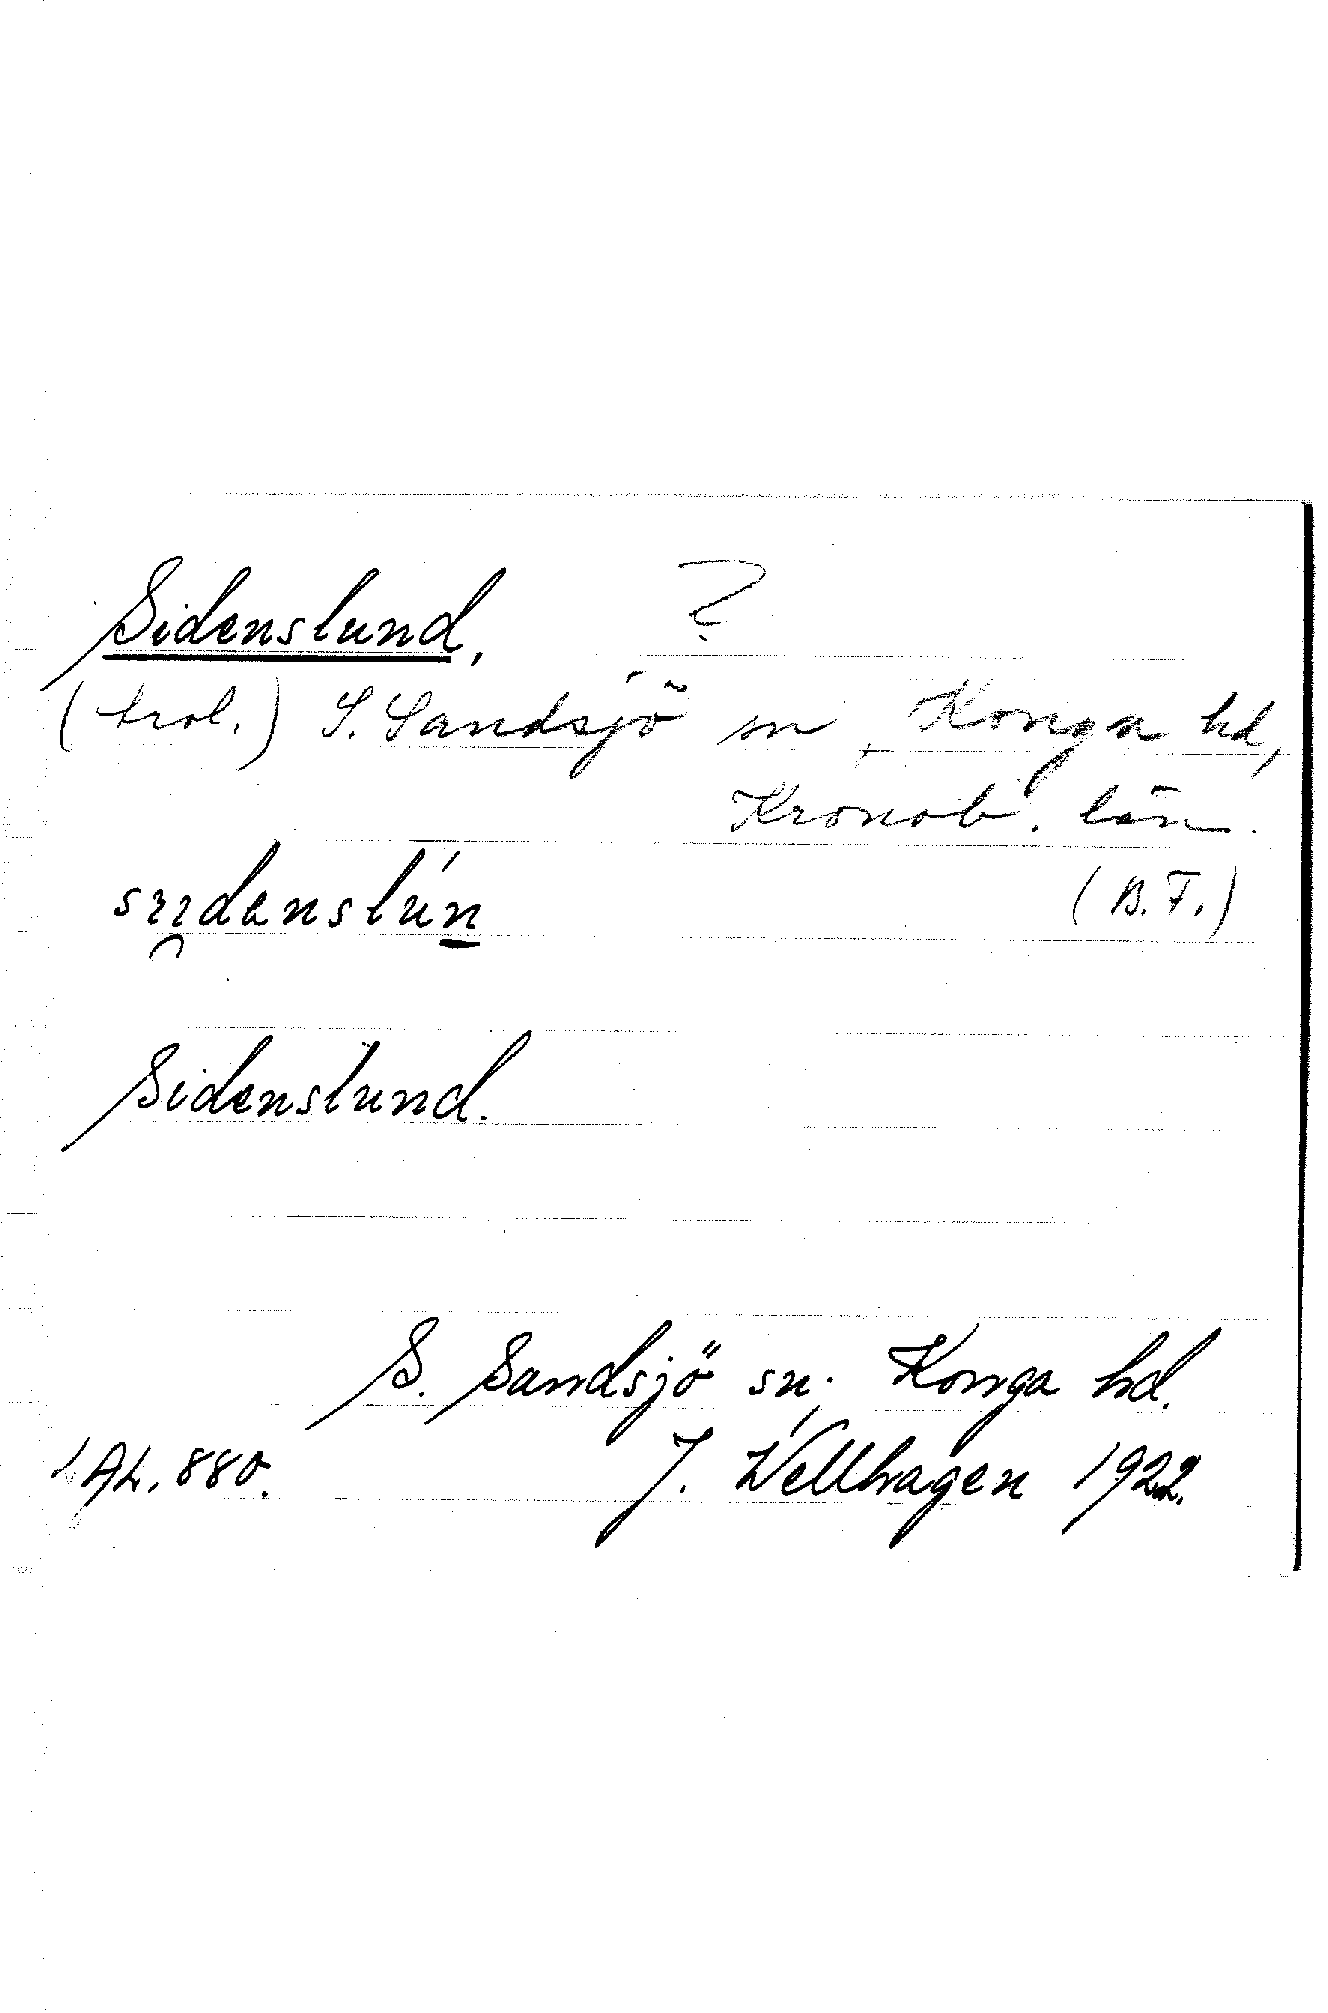 Sidenslund, ?
(trol.) S. Sandsjö sn, Konga hd,
Kronob. län.
(B.F.)
Sidenslund.
S. Sandsjö sn. Konga hd.
LAL. 880. J. Wellhagen 1922.